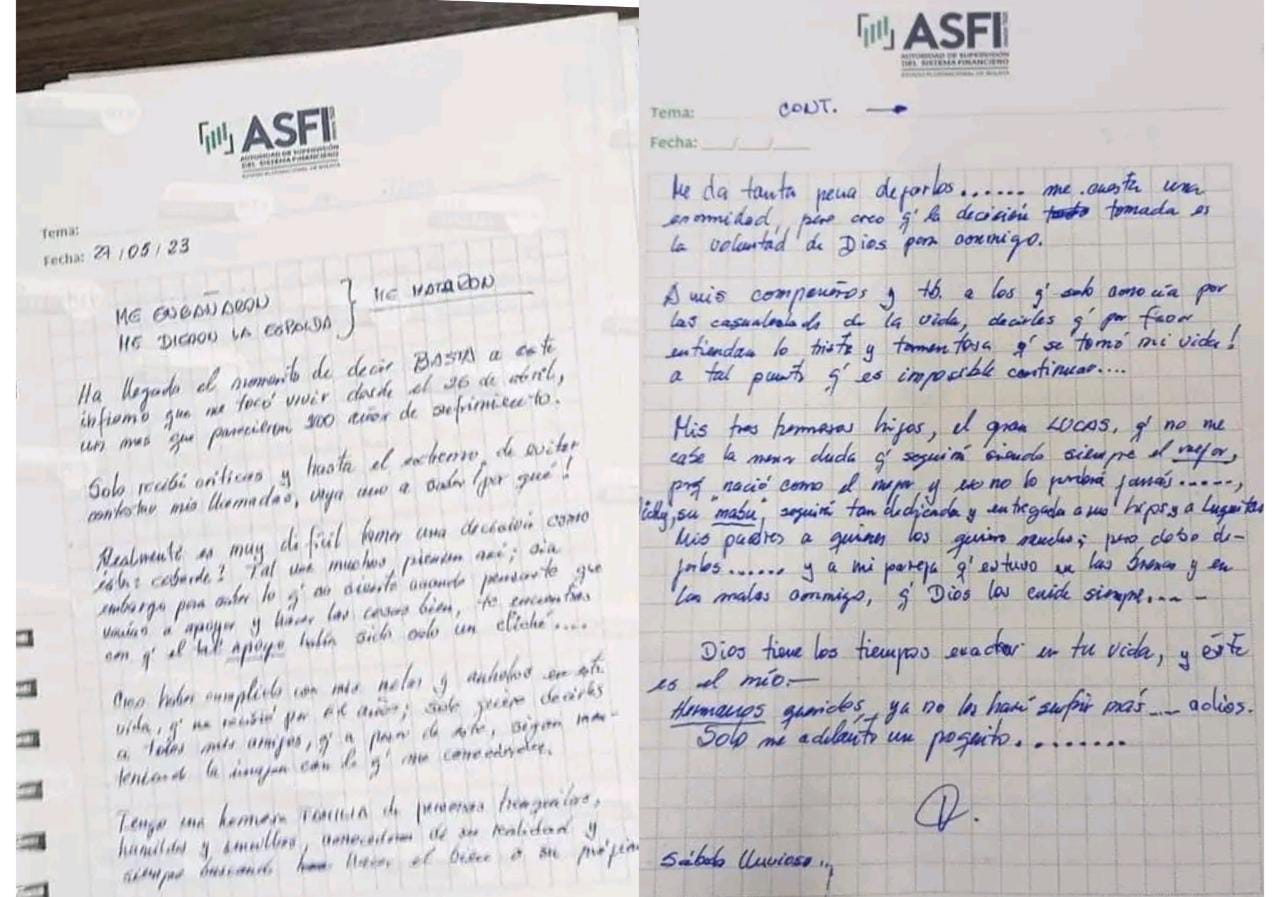 ASFI
AUTORIDAD DE SUPERVISIÓN
DEL SISTEMA FINANCIERO
ESTADO PLURINACIONAL DE BOLIVIA
Tema:
Fecha: 27/05/23
ME ENGAÑARON
ME DIERON LA ESPALDA } ME MATARON
Ha llegado el momento de decir BASTA a este
infierno que me tocó vivir desde el 26 de abril,
un mes que parecieron 100 años de sufrimiento.
Solo recibí críticas y hasta el extremo de evitar
contestar mis llamadas, vaya uno a saber ¡por qué!
Realmente es muy difícil tomar una decisión como
ésta: cobarde? Tal vez muchos piensen así; sin
embargo para saber lo q' se siente cuando pensaste que
vanían a apoyar y hacer las cosas bien, te encuentras
con q' el tal apoyo había sido solo un cliché....
Creo haber cumplido con mis metas y anhelos en esta
vida, q' me por 61 años; solo quiero decirles
a todos mis amigos, q' a pesar de esto, sigan man-
teniendo la imagen con la q' me conocieron.
Tengo una hermosa FAMILIA de personas tranquilas,
humildes y sencillas, conocedoras de su realidad y
siempre buscando hacer el bien a su prójimo
ASFI
AUTORIDAD DE SUPERVISIÓN
DEL SISTEMA FINANCIERO
ESTADO PLURINACIONAL DE BOLIVIA
Tema: CONT. →
Fecha: __/__/__
Me da tanta pena dejarlos...... me cuesta una
enormidad, pero creo q' la decisión tomada es
la voluntad de Dios para conmigo.
A mis compañeros y tb. a los q' solo conocía por
las casualidades de la vida, decirles q' por favor
entiendan lo triste y tormentosa q' se tornó mi vida!
a tal punto q' es imposible continuar....
Mis tres hermosos hijos, el gran LUCAS, q' no me
cabe la menor duda q' seguirá siendo siempre el mejor,
porq' nació como el mejor y eso no lo perderá jamás.....,
su "mabu", seguirá tan dedicada y entregada a sus hijos y a Luquitas
Mis padres a quienes los quiero mucho; pero debo de-
jarlos...... y a mi pareja q' estuvo en las buenas y en
las malas conmigo, q' Dios los cuide siempre....
Dios tiene los tiempos exactos en tu vida, y éste
es el mío.—
Hermanos queridos, ya no los haré sufrir más.... adios.
Solo me adelanto un poquito........
Sábado lluvioso..